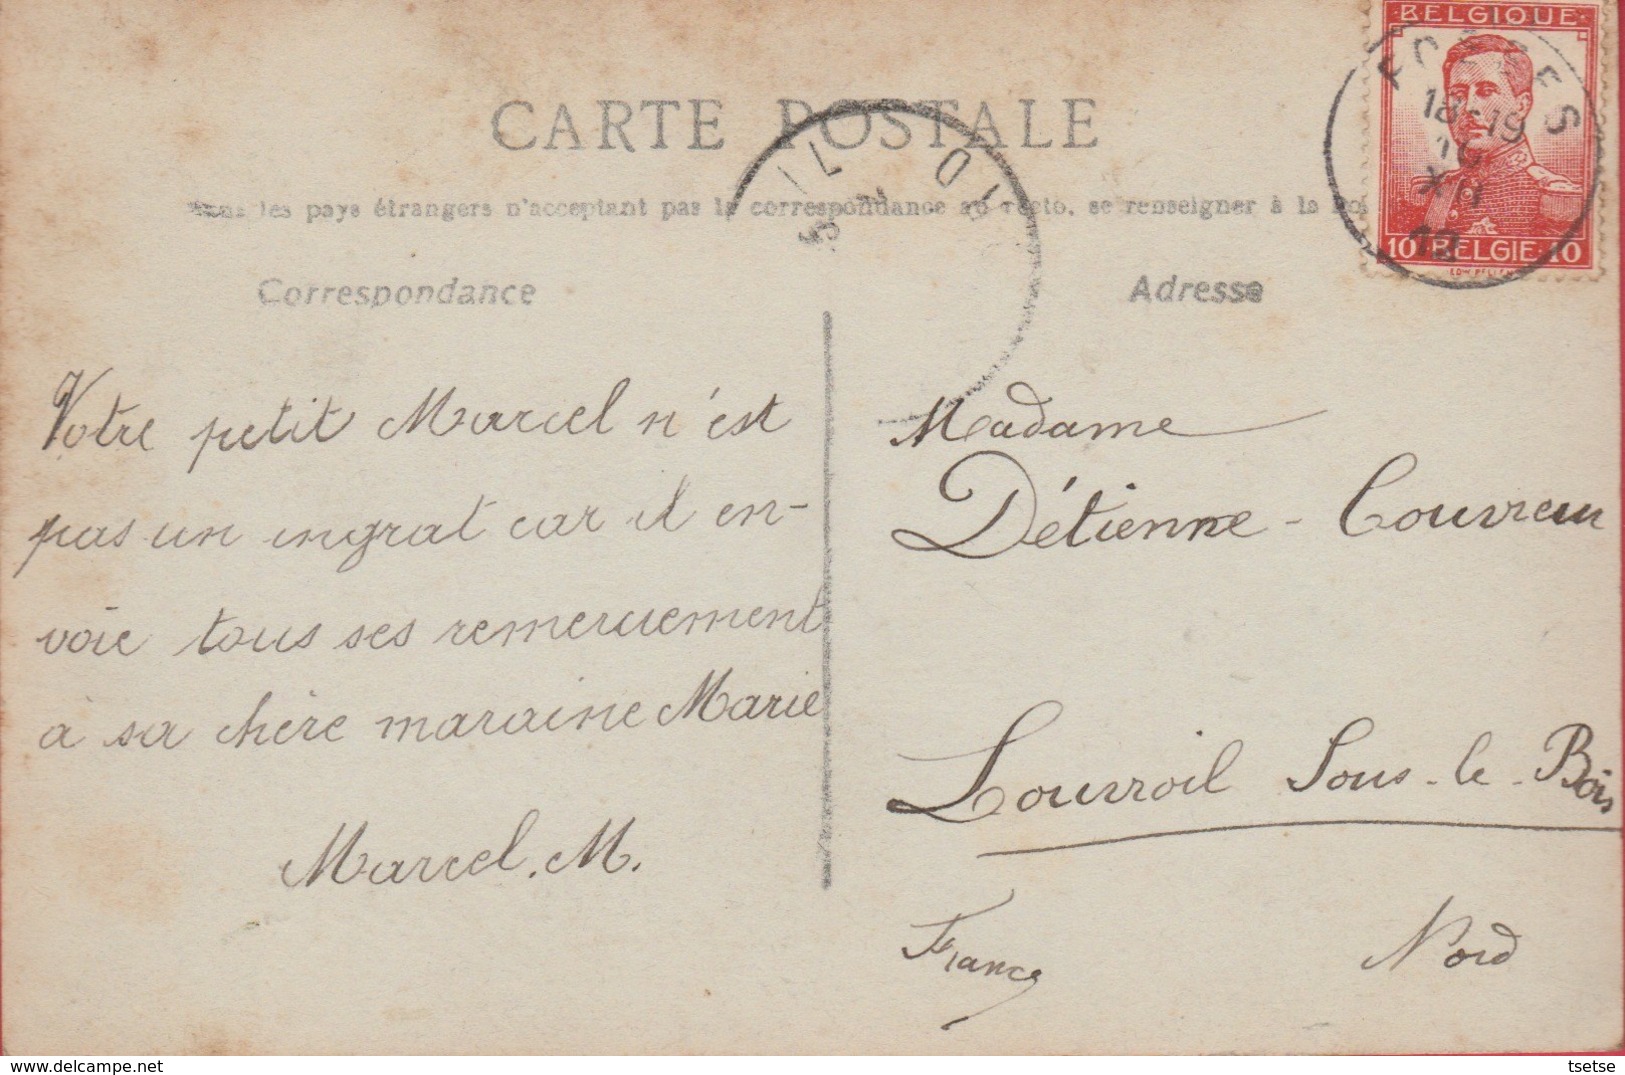 BELGIQUE
FOSSES
18-19
19
XII
12
10 BELGIE 10
CARTE POSTALE
Tous les pays étrangers n'acceptant pas la correspondance au recto, se renseigner à la
Correspondance
Adresse
Votre petit Marcel n'est
pas un ingrat car il en-
voie tous ses remerciement
à sa chère maraine Marie
Marcel. M.
Madame
Détienne - Couvreur
Louvroil Sous-le-Bois
France Nord
tsetse